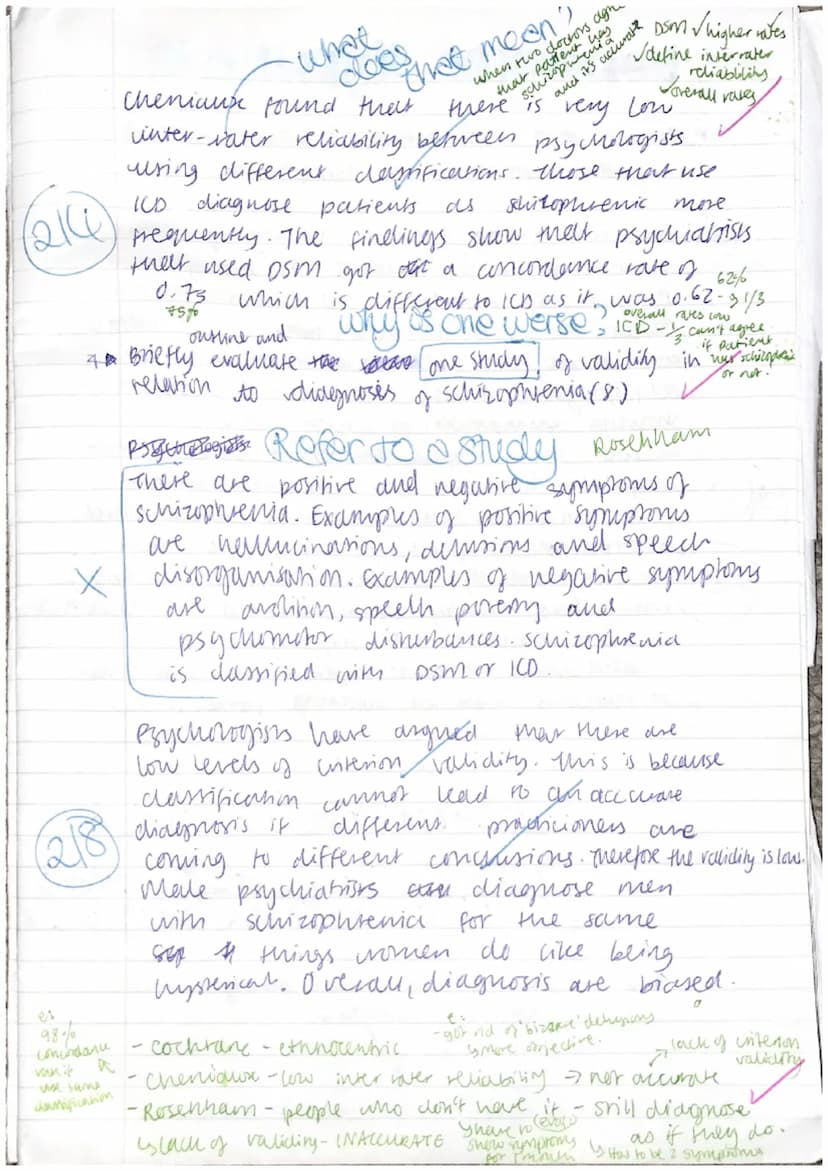 what does that mean?
when two doctors agree
that patient has
schizophrenia
and it's accurate
DSM ✓ higher rates
✓ define inter rater
reliability
✓ overall rates
Cheniaux found that there is very low
inter-rater reliability between psychologists
using different classifications. Those that use
ICD diagnose patients as schizophrenic more
frequently. The findings show that psychiatrists
that used DSM got a concordance rate of
0.75 which is different to ICD as it was 0.62
75%
62%
- 1/3
2/4
why is one worse?
overall rates low
ICD - 1/3 can't agree
if patient
has schizophrenia
or not.
outline and
4 Briefly evaluate one study of validity in
relation to diagnosis of schizophrenia (8)
Psychologists
Refer to a study
Rosenham
There are positive and negative symptoms of
schizophrenia. Examples of positive symptoms
are hallucinations, delusions and speech
disorganisation. Examples of negative symptoms
X
are avolition, speech poverty and
psychomotor disturbances. Schizophrenia
is classified with DSM or ICD.
Psychologists have argued that there are
low levels of criterion validity. This is because
classification cannot lead to an accurate
diagnosis if different practicioners are
2/8
coming to different conclusions. Therefore the validity is low.
Male psychiatrists diagnose men
with schizophrenia for the same
things women do like being
hysterical. Overall, diagnosis are biased.
e:
98%
concordance
when if
use same
classification
e:
- got rid of 'bizarre' delusions
↳ more objective.
- cochrane - ethnocentric
lack of criterion
validity
- Cheniaux - low inter rater reliability → not accurate
- Rosenham - people who don't have it - still diagnose
as if they do.
↳ lack of validity - INACCURATE
↳ have to
show symptoms
for 1 month
↳ Has to be 2 symptoms